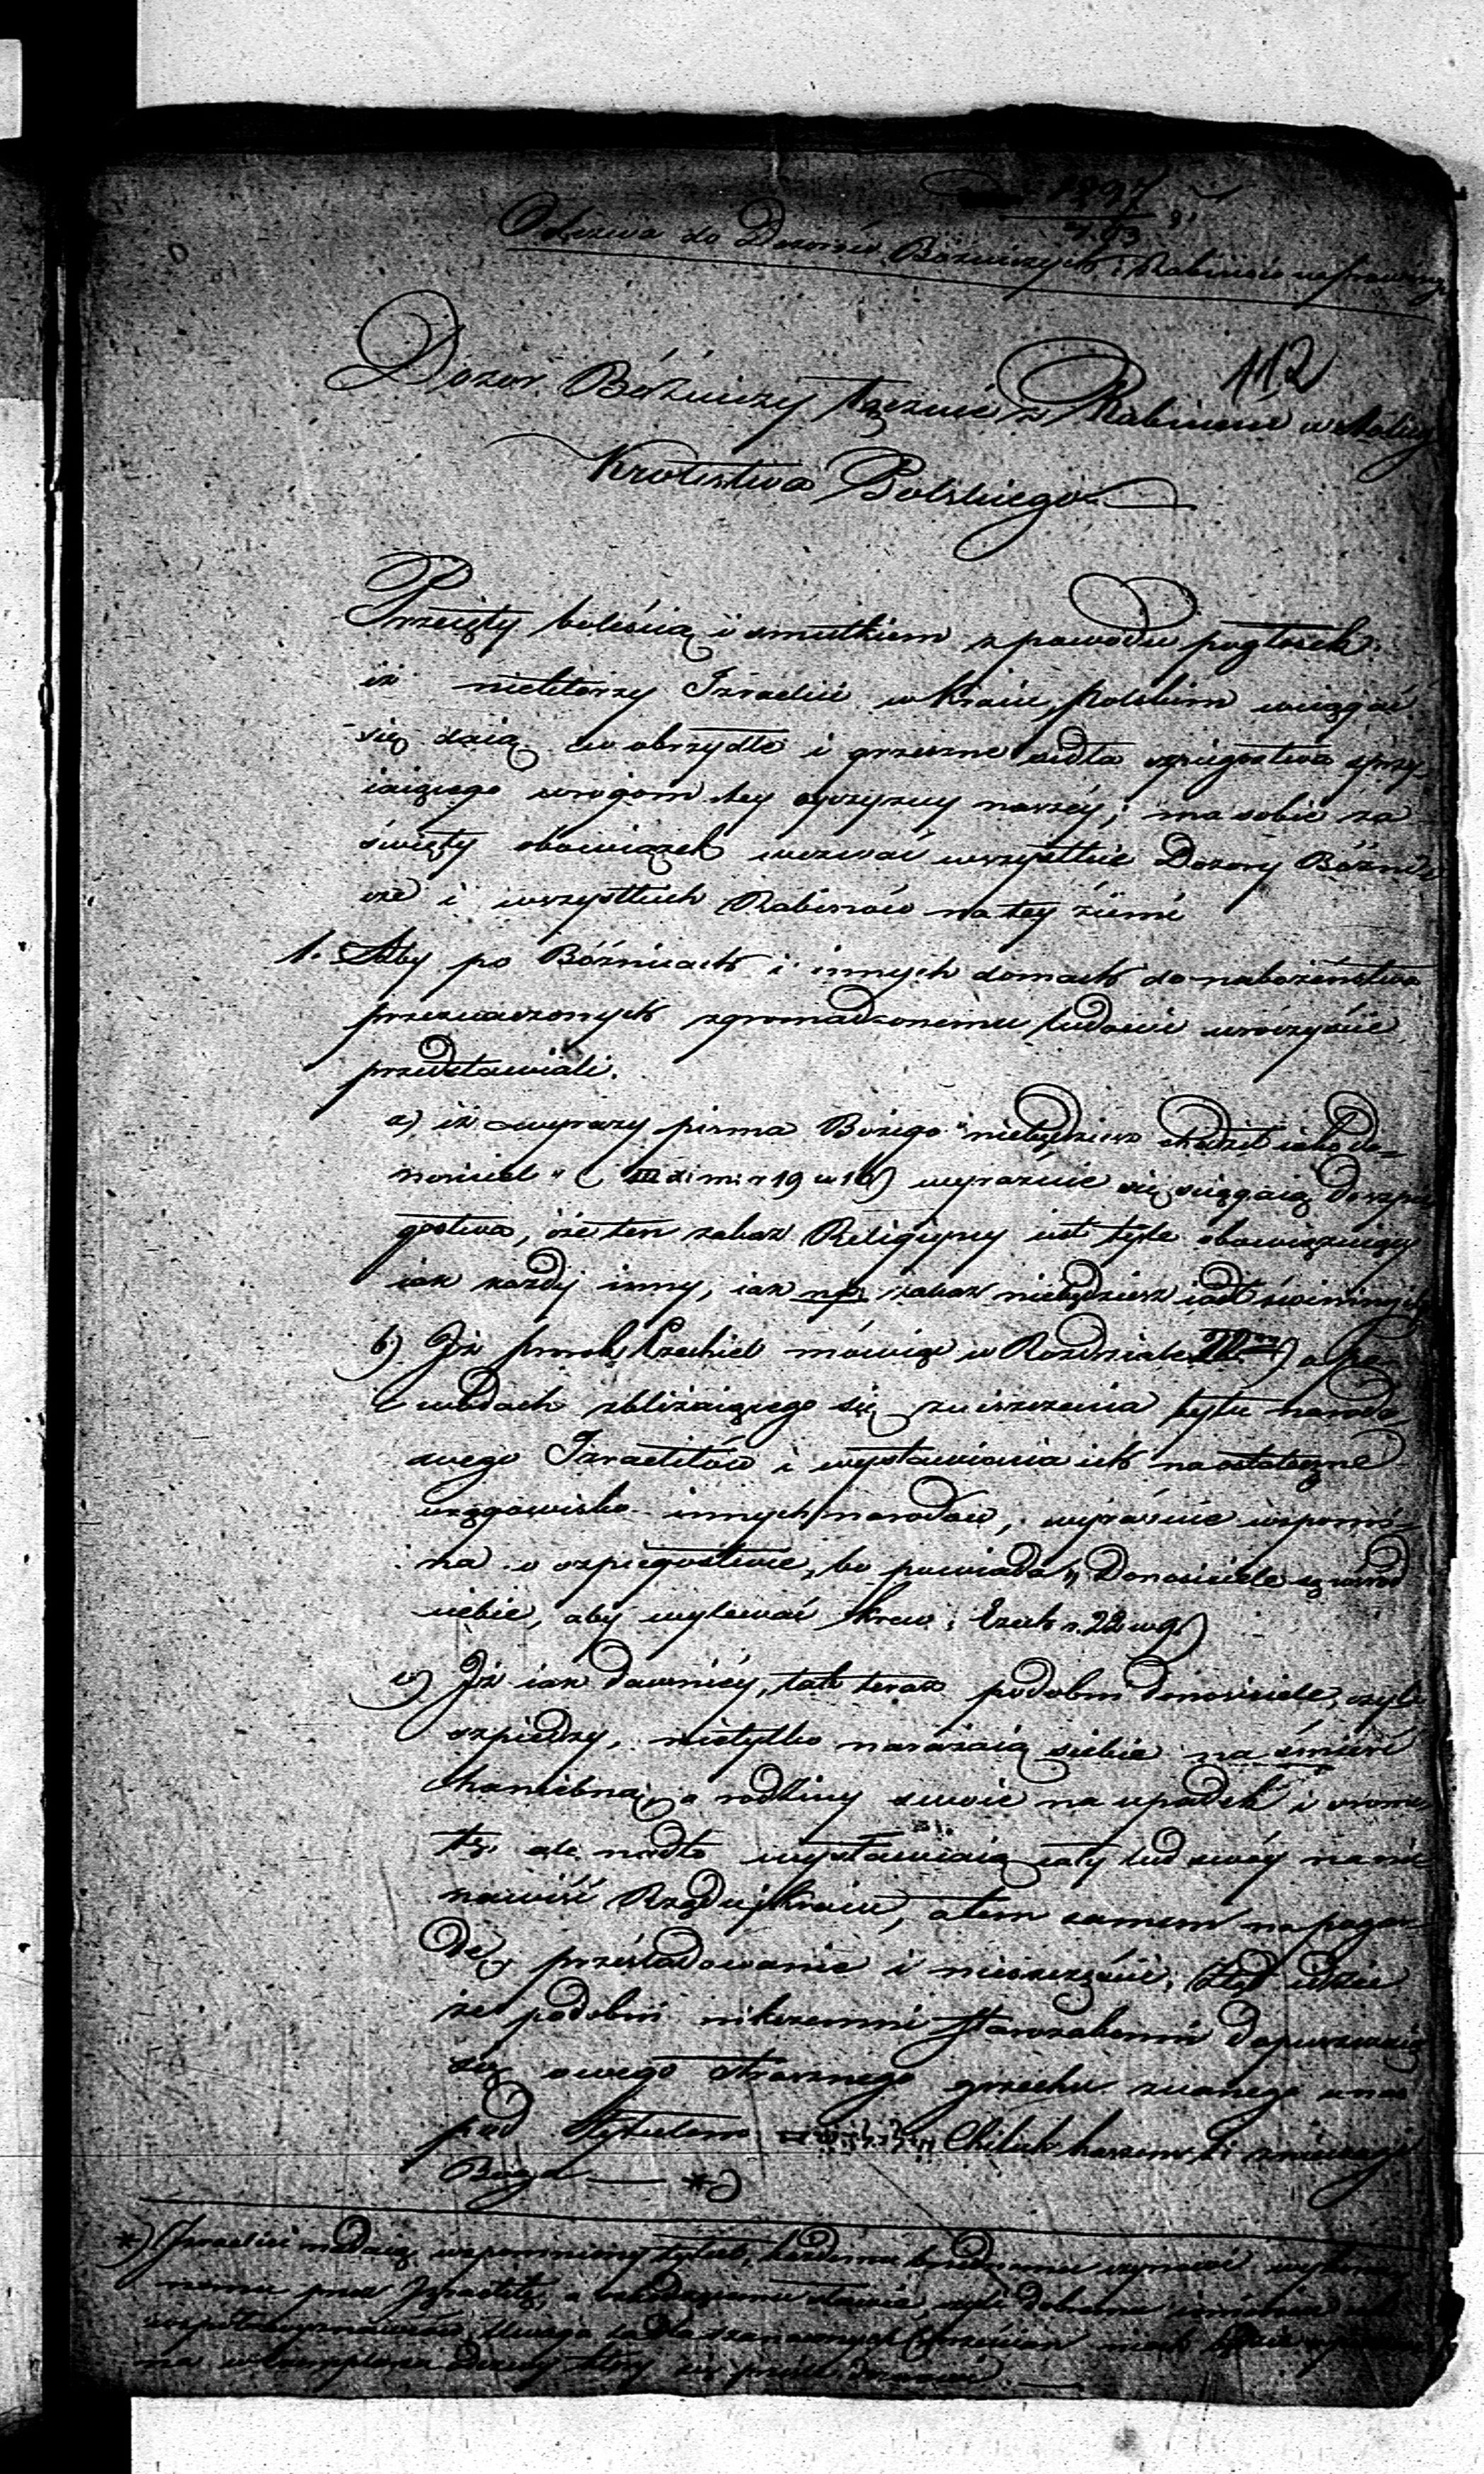 1897
Odezwa do Dozorów Bóżniczych i Rabinów
112
Dozór Bóżniczy łącznie z Rabinem w stolicy
Królestwa Polskiego
Przejęty boleścią i smutkiem z powodu pogłosek
iż niektórzy Izraelici w Kraiu Polskim wciągać
się daią w obrzydłe i grzeszne sidła szpiegostwa sprzy
iaiącego wrogom tey oyczyzny naszéy; ma sobie za
święty obowiązek wezwać wszystkie Dozory Bóżni
cze i wszystkich Rabinów na tey ziemi
1. Aby po Bóżnicach i innych domach do nabożeństwa
przeznaczonych zgromadzonemu ludowi uroczyście
przedstawiali.
a) iż wyrazy pisma Bożego "niebędziesz chodził iako do-
nosiciel" (III 19 w 16) wyraźnie się ściągaią do szpie
gostwa, i że ten zakaz Religijny iest tyle obowiązuiący
iak każdy inny, iak np. zakaz niebędziesz iadł świniny
b) Iż prorok Ezechiel mówiąc w Rozdziale o po-
wodach zbliżaiącego się zniszczenia bytu narodo-
wego Izraelitów i wystawienia ich na ostateczne
urągowisko innych narodów, wyraźnie wspomi-
na o szpiegostwie, bo powiada „Donosiciele są wśród
ciebie, aby wylewać krew: Ezech r. 22 w 9)
c) Iż iak dawniéy, tak teraz podobni donosiciele, czyli
szpiedzy, nietylko narażaią siebie na śmierć
haniebną, a rodziny swoie na upadek i sromo
tę, ale nadto wystawiaią cały lud swóy na nie
nawiść Rządu i Kraiu, a tem samem na pogar-
dę, prześladowanie i nieszczęście; Ztąd idzie
że podobni nikczemni Starozakonni dopuszczaią
się owego strasznego grzechu zwanego u nas
pod tytułem Chilul haszem t. i. znieważ
Boga — *)
*) Izraelici nadaią wspomniony tytuł, każdemu
nemu przez Izraelitę, a
współwyznawców, Uwaga ta dla szanownych Chrześcian niech będzie